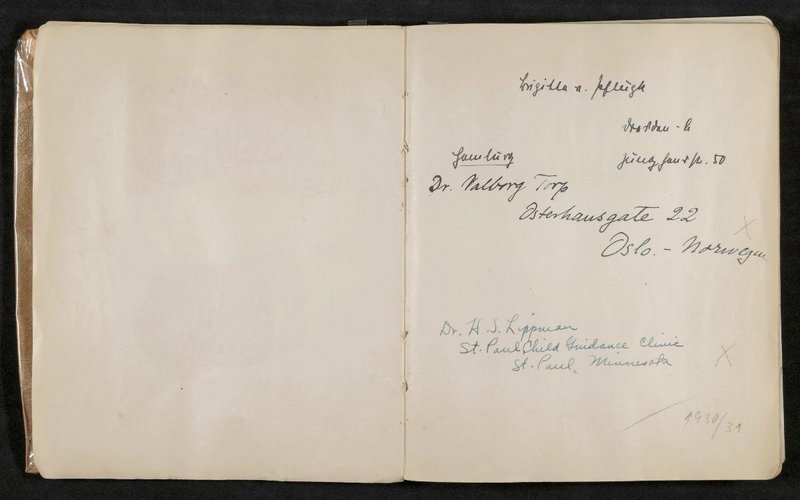 Brigitta v. Pflugk
Dresden-A
Hamburg
Dr. Valborg Torp
Osterhausgate 22 X
Oslo. - Norwegen.
Dr. H S. Lippman
St. Paul Child Guidance Clinic
St. Paul, Minnesota X
1930/31